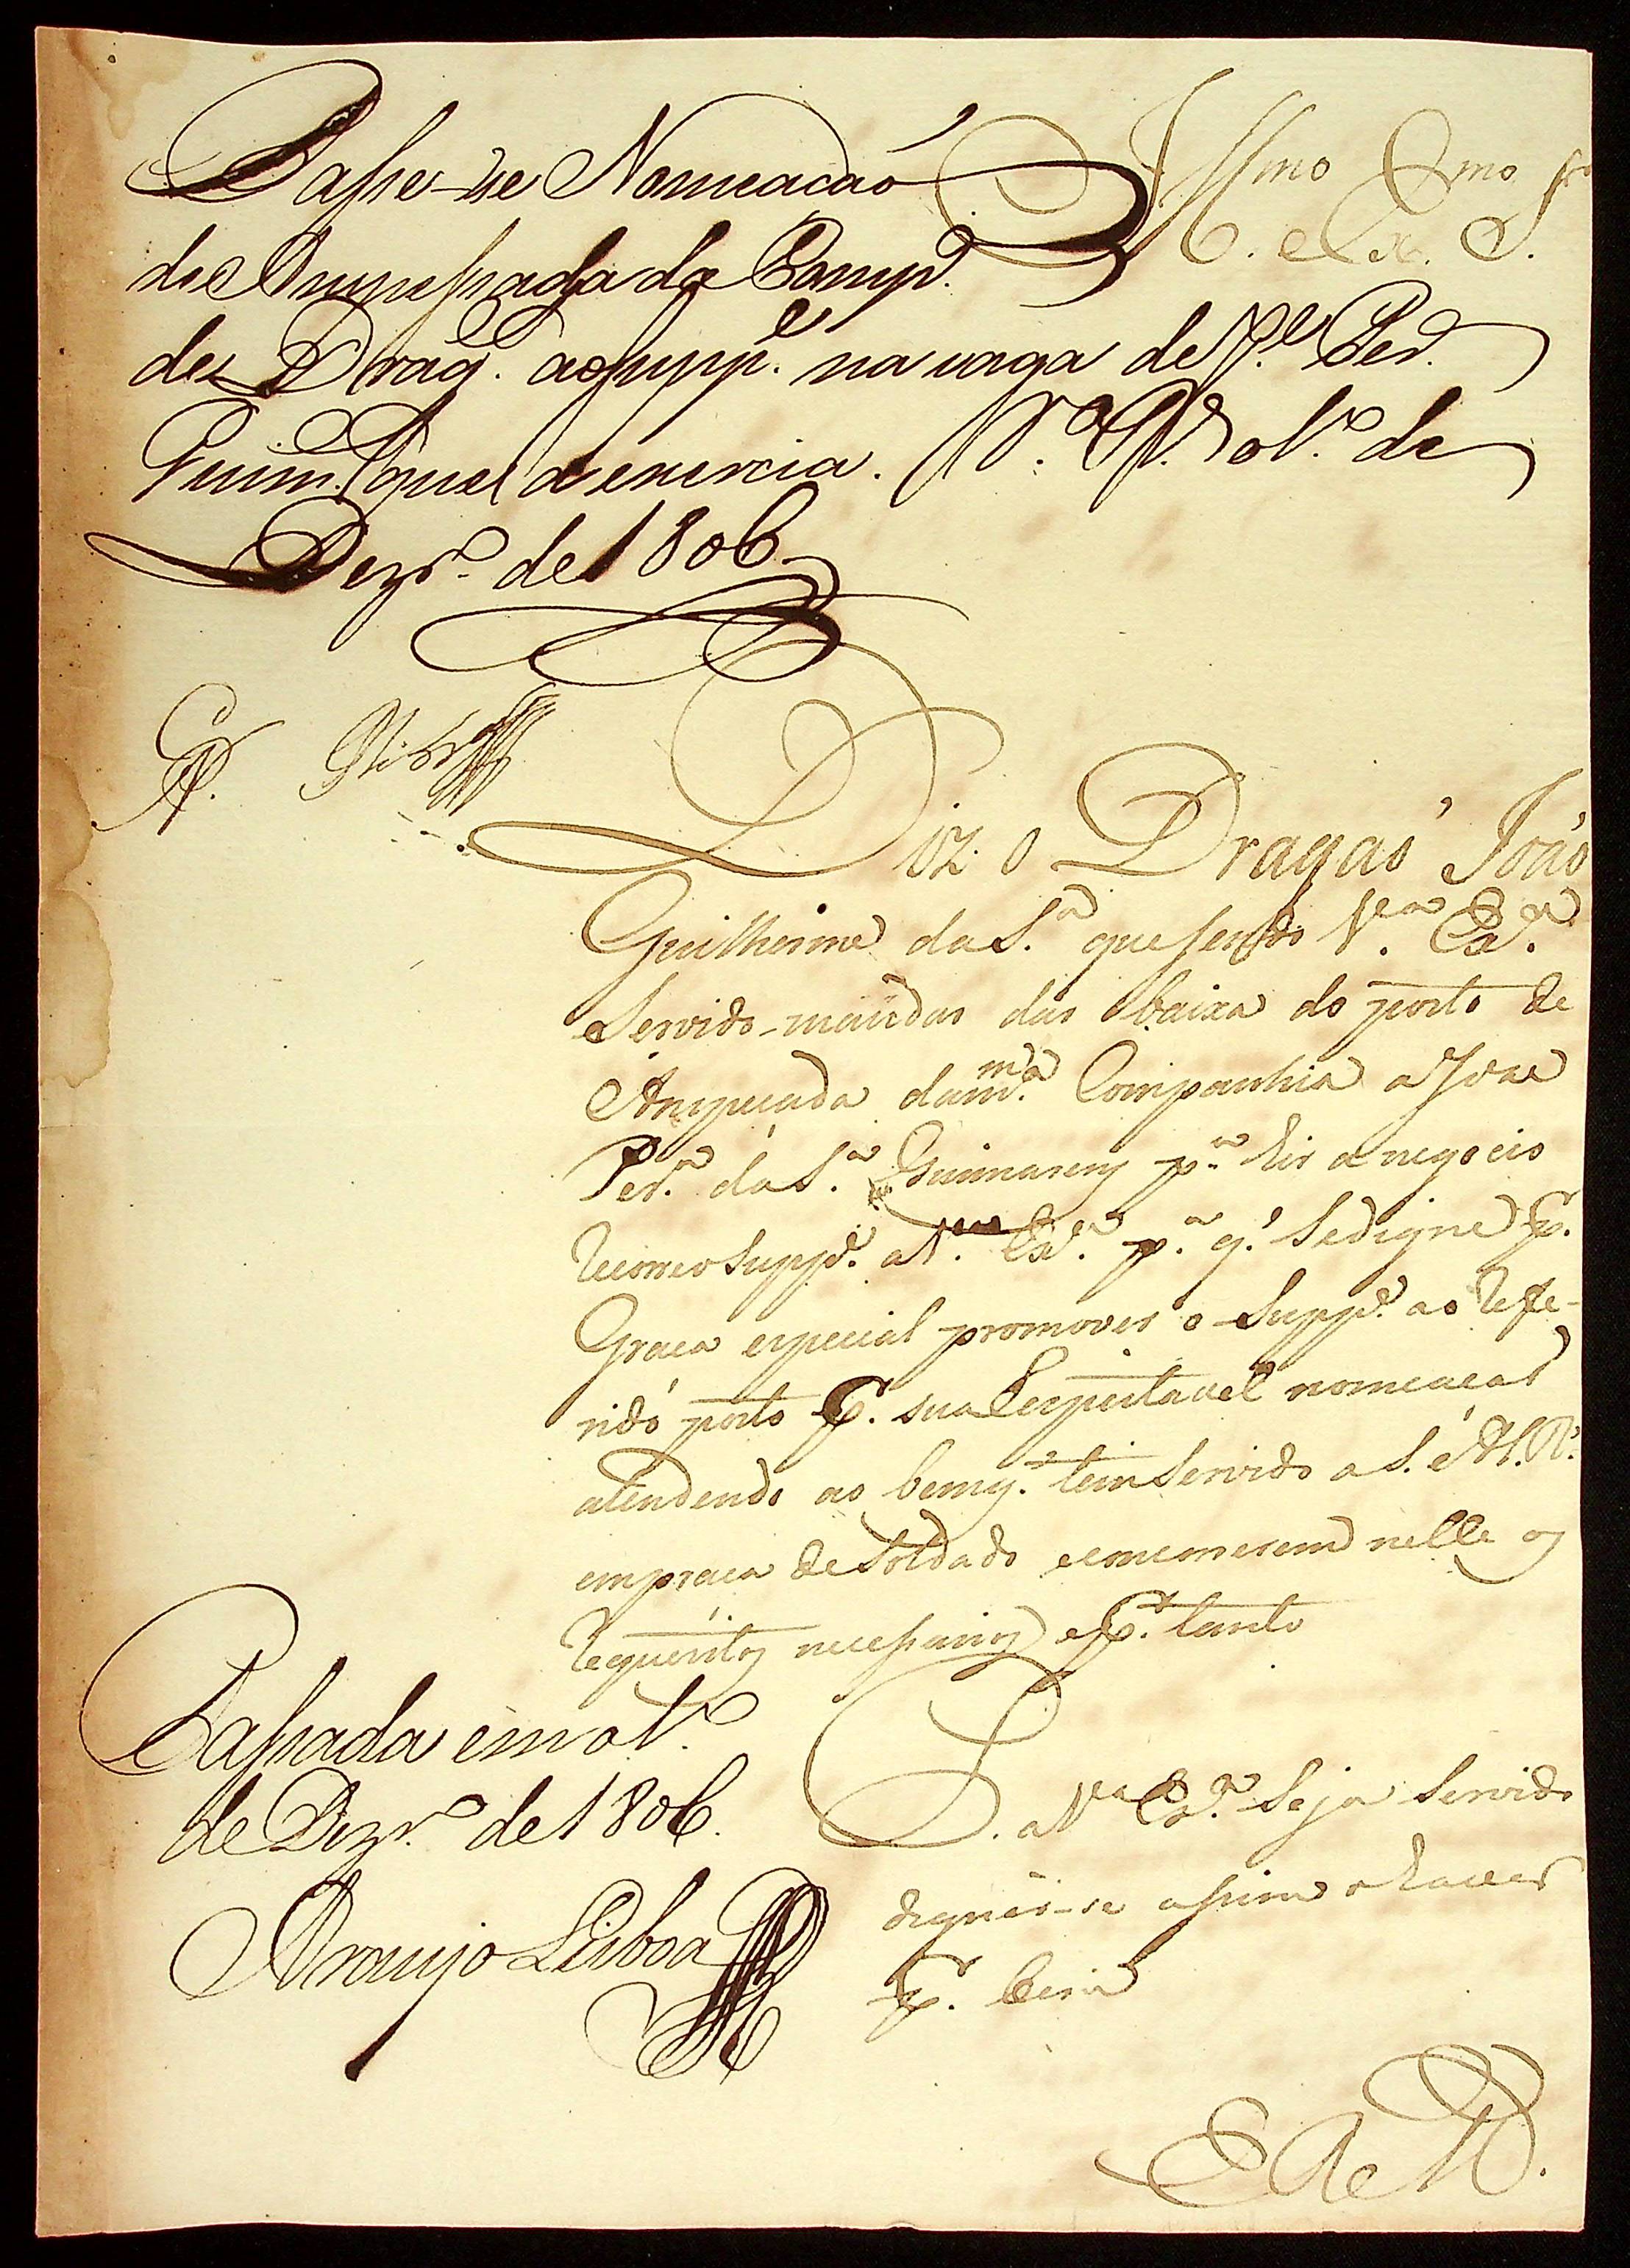 Passe-se Nomeacaõ
de Anspessada da Comp.ª
de Drag.s ao supp.e na vaga de J.e Per.ª
Guim. que a exercia. V.ª R.ª 01. de
Dezr.º de 1806
Illmo Exmo Sr
G. e Ex. S.
Diz o Dragaõ Joaõ
Guilherme da S.ª que sendo V.ª Ex.ª
Servido mandar dar baixa do posto de
Anspeçada da m.ma Companhia a Joze
Per.ª da S.ª Guimarens p.ª hir a negocio
recorre o Supp.e a V.ª Ex.ª p.ª q' se digne P.
Graça especial promover o Supp.e ao refe-
rido posto P. sua Respeitavel nomeacaõ
atendendo ao bem q.' tem Servido a S. A. R.
em praca de Soldado e concorrerem nelle os
requezitos necessarios e P. tanto
P. a V.ª Ex.ª Seja Servido
dignar-se assim o haver
P. bem
E R M.
Passada em 01.
de Dezr.º de 1806.
Araujo Lisboa